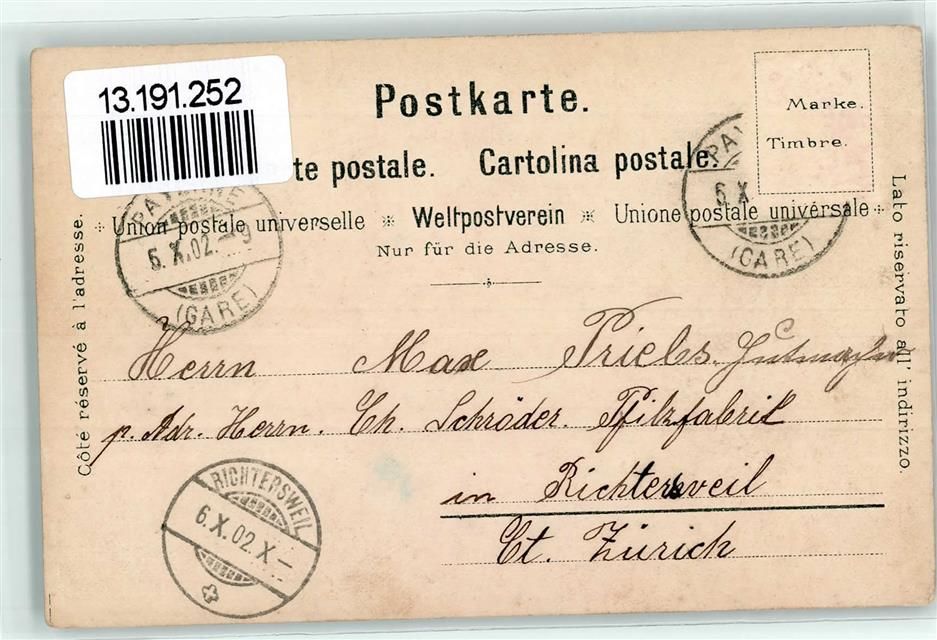 13.191.252
Postkarte.
te postale. Cartolina postale.
Union postale universelle * Weltpostverein * Unione postale universale
Nur für die Adresse.
Marke.
Timbre.
Côté réservé à l'adresse.
Lato riservato all' indirizzo.
PAYERNE
6.X.02.-9
(GARE)
PAY
6 X
(GARE)
Herrn Max Priebs
p. Adr. Herrn. Ch. Schröder. Filzfabrik
in Richtersweil
Ct. Zürich
RICHTERSWEIL
6.X.02.X-